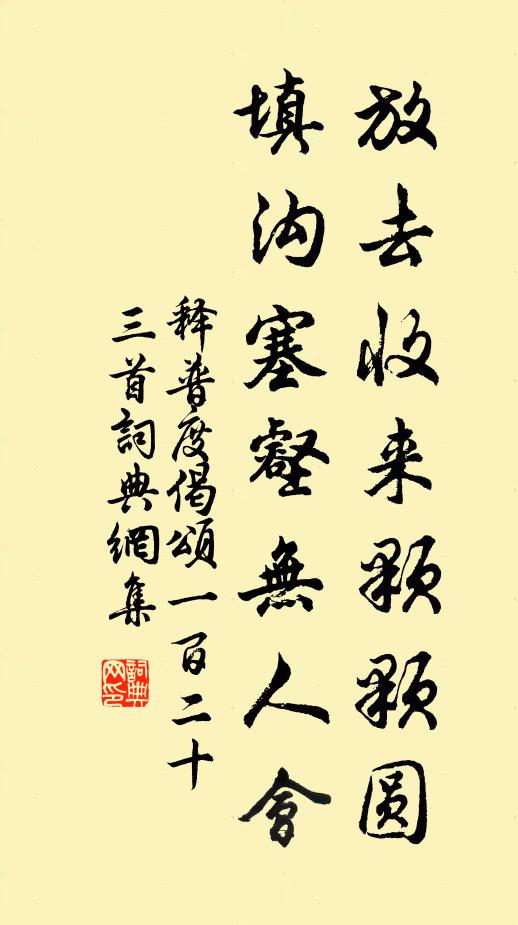 放去收来颗颗圆
填沟塞壑無人會
释普度偈頌一百二十
三首詞典網集
詞典网印